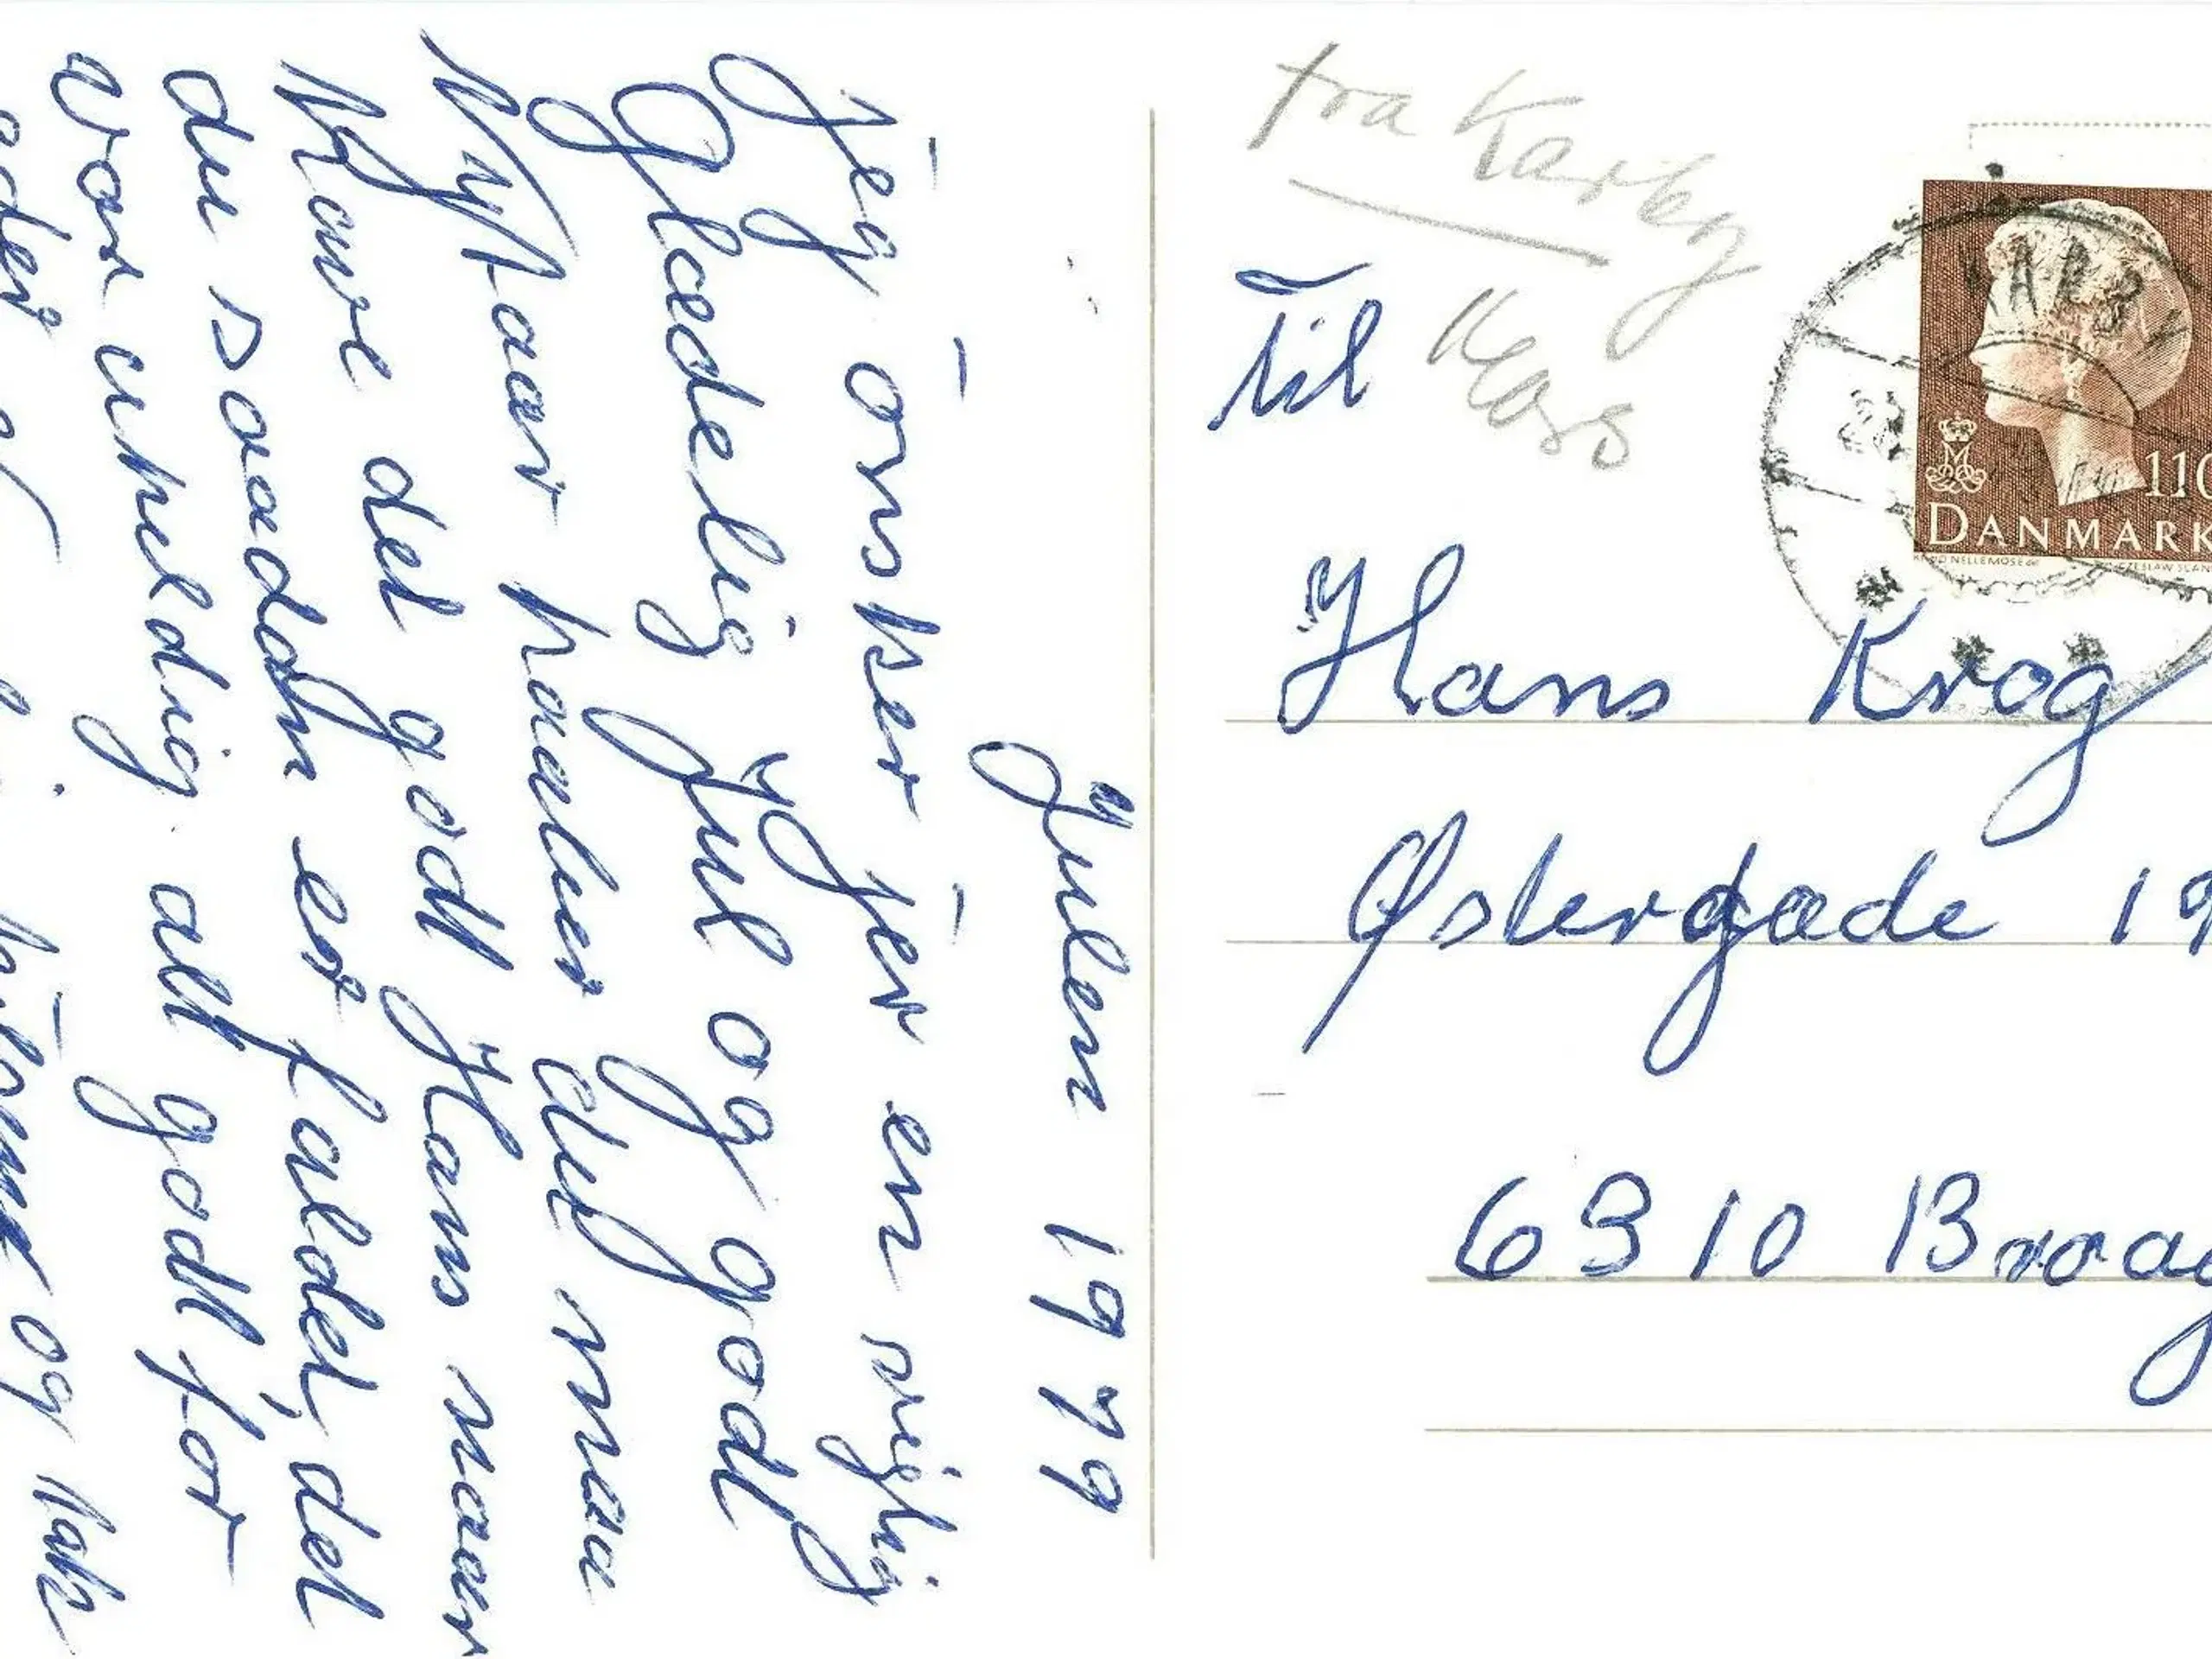 Julen 1979
Jeg ōnsker jer en rigtig
Glædelig Jul og godt
Nytaar haaber du maa
Have det godt Hans naar
du saaddn er faldet, det
var uheldig. alt godt for
og
fra Karby
Mors
Til
Hans Krog
Østergade 19
6310 Broag
110
DANMARK